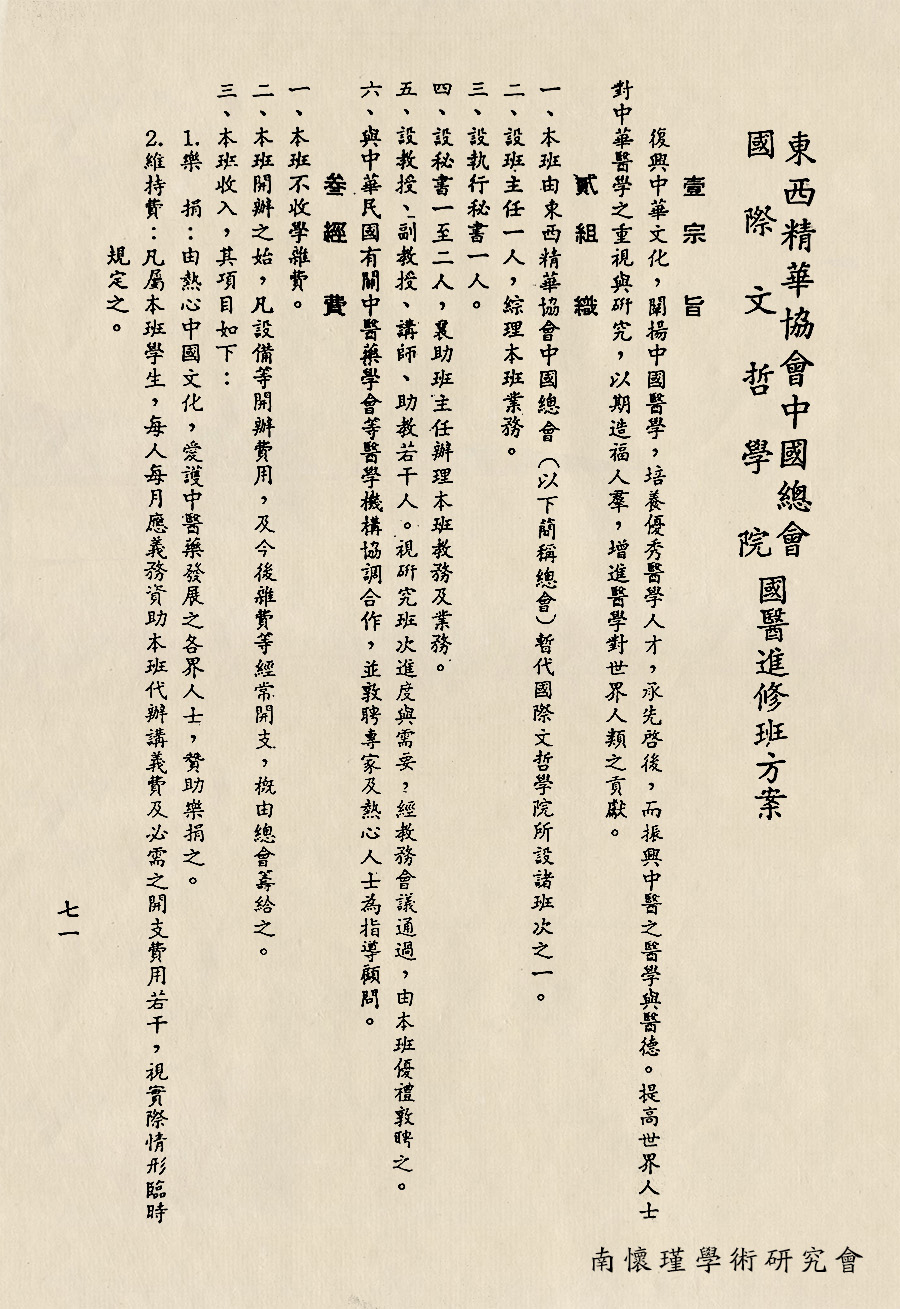 東西精華協會中國總會
國際文哲學院
國醫進修班方案
壹宗　旨
復興中華文化，闡揚中國醫學，培養優秀醫學人才，承先啓後，而振興中醫之醫學與醫德。提高世界人士
對中華醫學之重視與研究，以期造福人羣，增進醫學對世界人類之貢獻。
貳組　織
一、本班由東西精華協會中國總會（以下簡稱總會）暫代國際文哲學院所設諸班次之一。
二、設班主任一人，綜理本班業務。
三、設執行秘書一人。
四、設秘書一至二人，襄助班主任辦理本班教務及業務。
五、設教授、副教授、講師、助教若干人。視研究班次進度與需要，經教務會議通過，由本班優禮敦聘之。
六、與中華民國有關中醫藥學會等醫學機構協調合作，並敦聘專家及熱心人士為指導顧問。
叁經　費
一、本班不收學雜費。
二、本班開辦之始，凡設備等開辦費用，及今後雜費等經常開支，概由總會籌給之。
三、本班收入，其項目如下：
1.樂　捐：由熱心中國文化，愛護中醫藥發展之各界人士，贊助樂捐之。
2.維持費：凡屬本班學生，每人每月應義務資助本班代辦講義費及必需之開支費用若干，視實際情形臨時
規定之。
七一
南懷瑾學術研究會